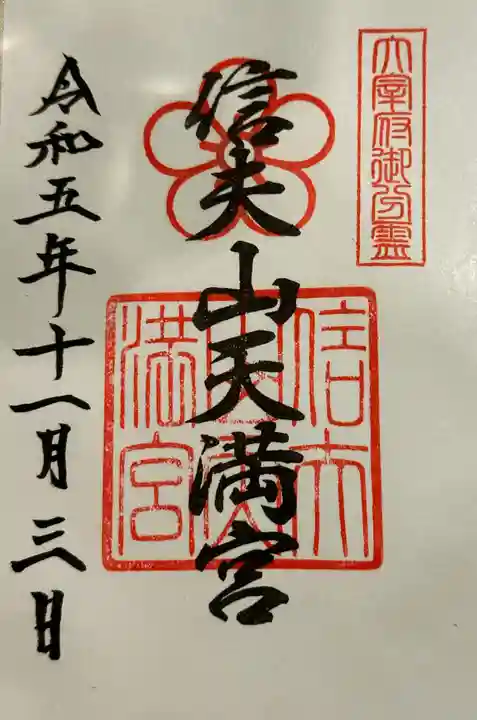 太宰府御分霊
信夫山天満宮
信夫山天満宮
令和五年十一月三日